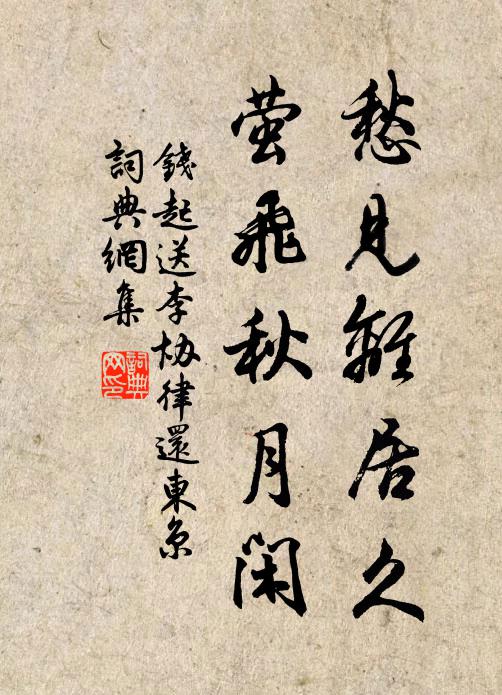 愁見離居久
萤飛秋月闲
錢起送李协律還東京
詞典網集
詞典網印